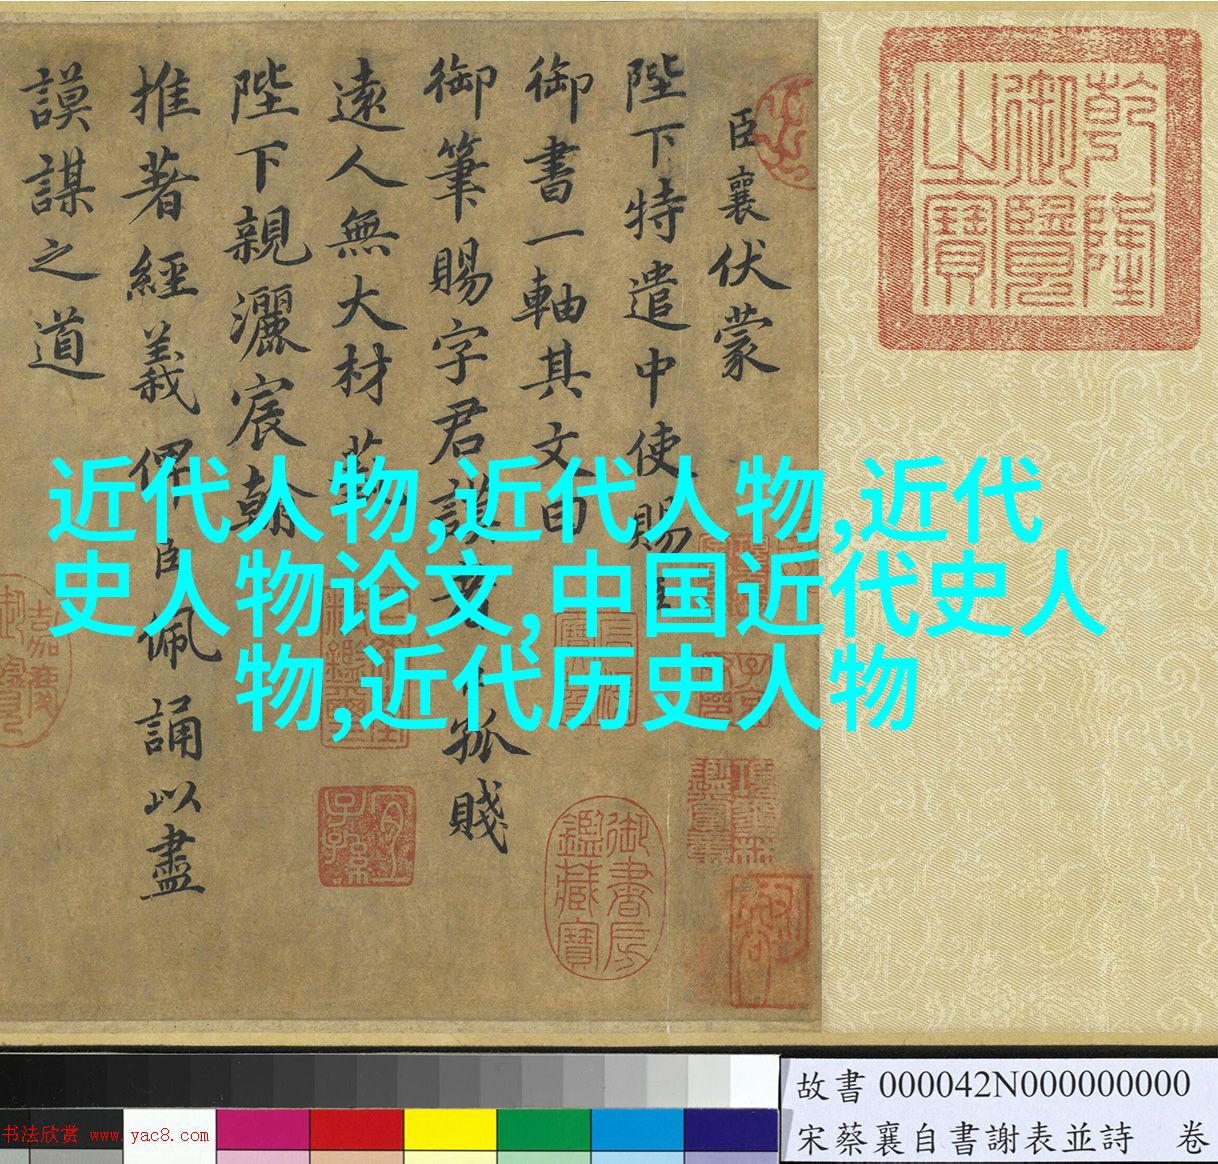 乾隆
御覽
之寶
臣襄伏蒙
陛下特遣中使賜臣
御書一軸其文曰
御筆賜字君謨者臣孤賤
遠人無大材藝
陛下親灑宸翰
推著經義俾臣佩誦以盡
謨謀之道
近代人物,近代人物,近代
史人物论文,中国近代史人
物,近代历史人物
御書房
鑑藏寶
宜
子孫
嘉慶
御覽
故書 000042N000000000
宋蔡襄自書謝表並詩 卷
书法欣赏 www.yac8.com